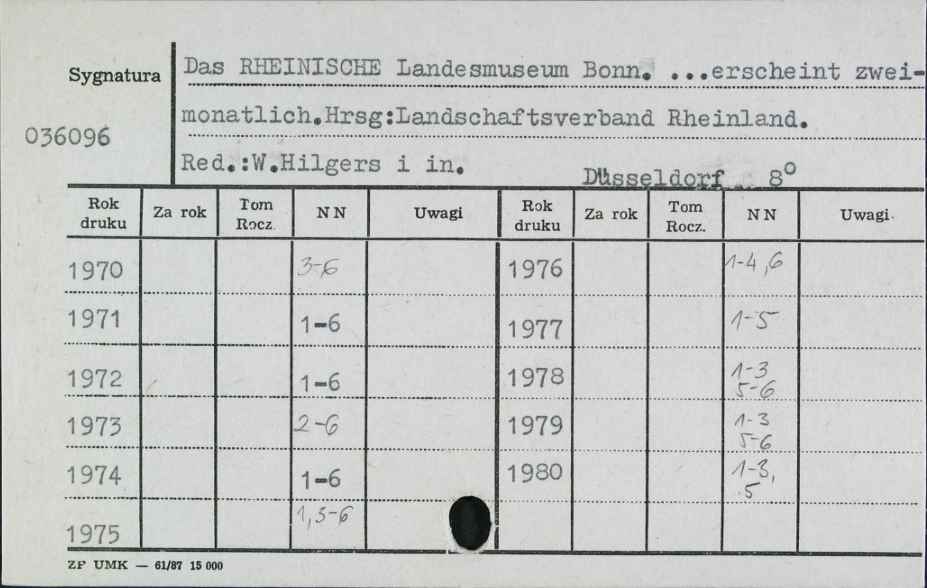 Sygnatura
Das RHEINISCHE Landesmuseum Bonn. ...erscheint zwei-
036096
monatlich.Hrsg:Landschaftsverband Rheinland.
Red.:W.Hilgers i in.
Düsseldorf 8°
Rok druku Za rok Tom Rocz. NN Uwagi Rok druku Za rok Tom Rocz. NN Uwagi
1970 3-6 1976 1-4,6
1971 1-6 1977 1-5
1972 1-6 1978 1-3
5-6
1973 2-6 1979 1-3
5-6
1974 1-6 1980 1-3,
5
1975 1,3-6
ZP UMK — 61/87 15 000